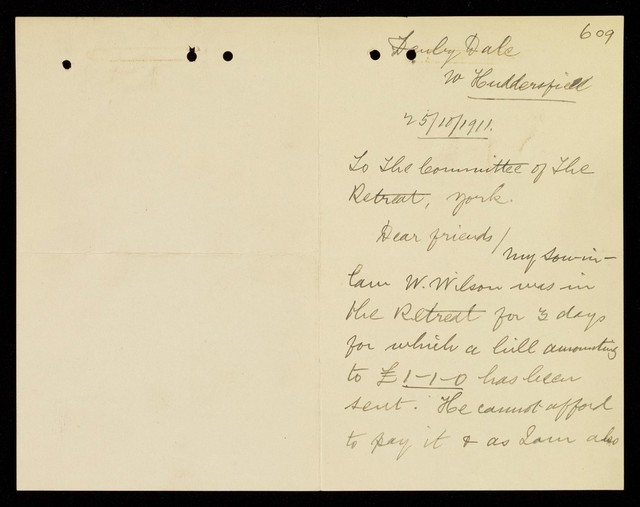 609
Denby Dale
W Huddersfield
25/10/1911.
To The Committee of The
Retreat, York.
Dear friends/
My son-in-
law W. Wilson was in
the Retreat for 3 days
for which a bill amounting
to £1-1-0 has been
sent. He cannot afford
to pay it & as I am also